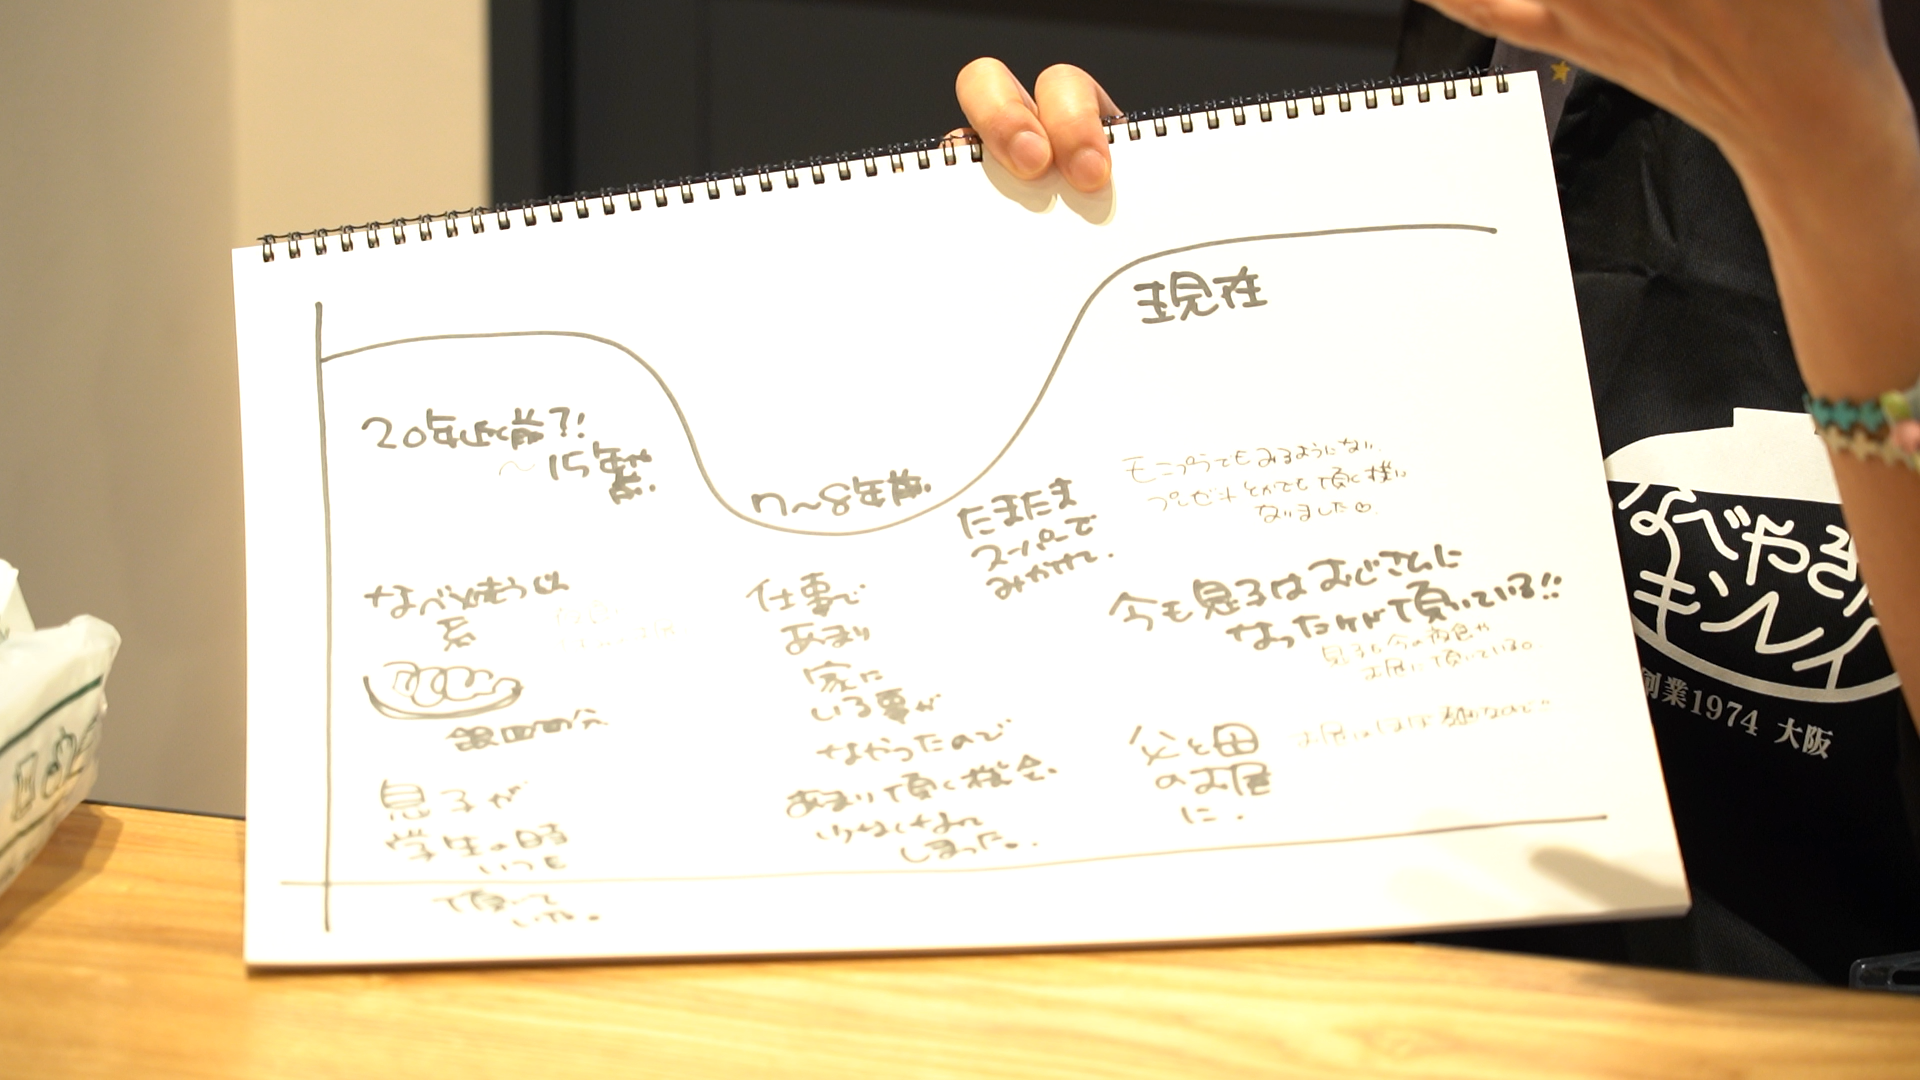 20年近く前?!
~15年前
なべ焼うどん
系
銀皿の分
息子が
学生の時
いつも
頂いて
いた。
7~8年前
仕事で
あまり
家に
いる事が
なかったので
あまり頂く機会
少なくなって
しまった。
たまたま
スーパーで
みかけて。
現在
モニプラでもみるようになり
プレゼントとかでも頂く様に
なりました♡
今も息子はおじさんに
なったけれど頂いている!!
息子も今の夜食や
お昼に頂いている。
父と母
のお昼
に。
なべやき
キンレイ
創業1974 大阪